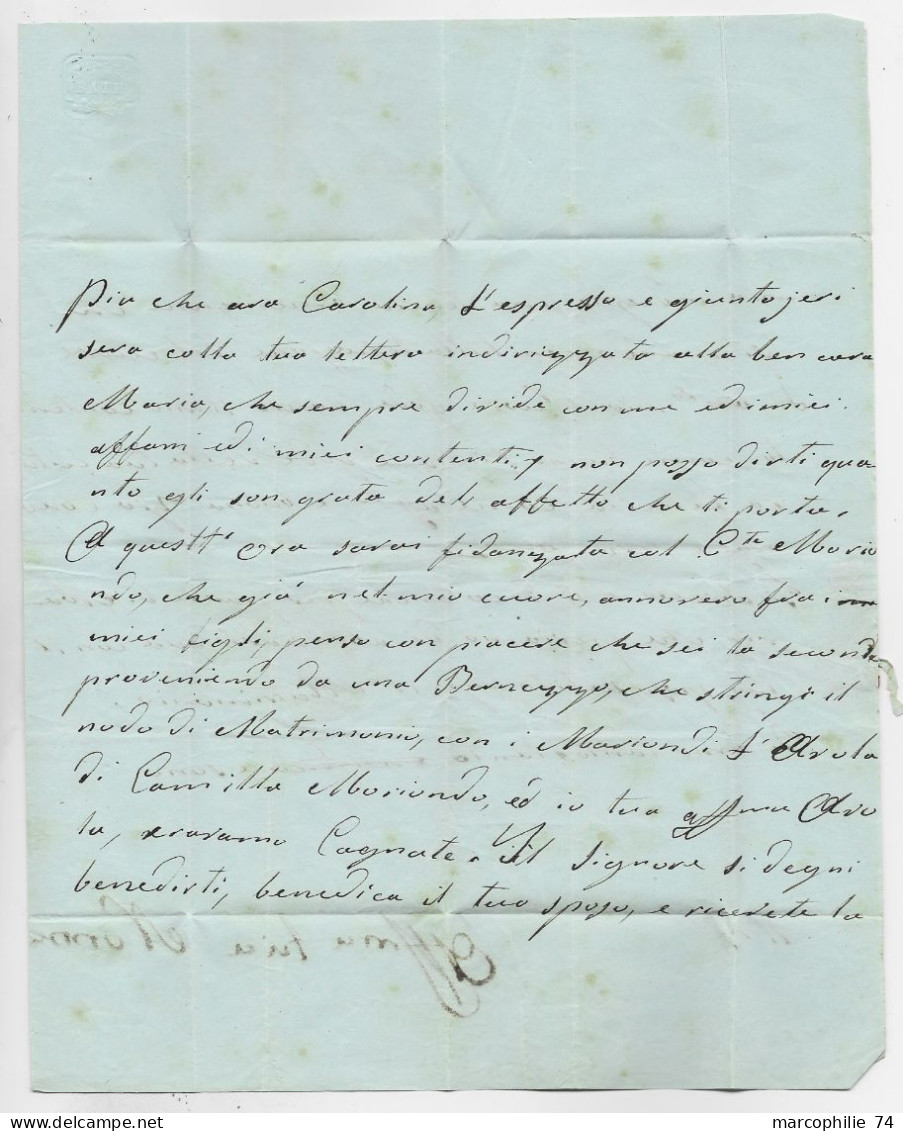 Piu che ara Carolina, L'espresso e giunto jeri
sera colla tua lettera indirizzata alla ben cara
Maria, che sempre divide con me ed i miei
affani ed i miei contenti, non posso dirti qua-
nto gli son grata dell affetto che ti porta.
A quest' Ora sarai fidanzata col C.te Morio
ndo, che giá nel mio cuore, annovero fra i
miei figli, penso con piacere che sei la seconda
proveniendo da una Bernezzo, che stringi il
nodo di Matrimonio, con i Moriondi L'Avola
di Camilla Moriondo, ed io tua affma Avo
la, eravamo Cognate. Il Signore si degni
benedirti, benedica il tuo sposo, e ricevete la
marcophilie 74